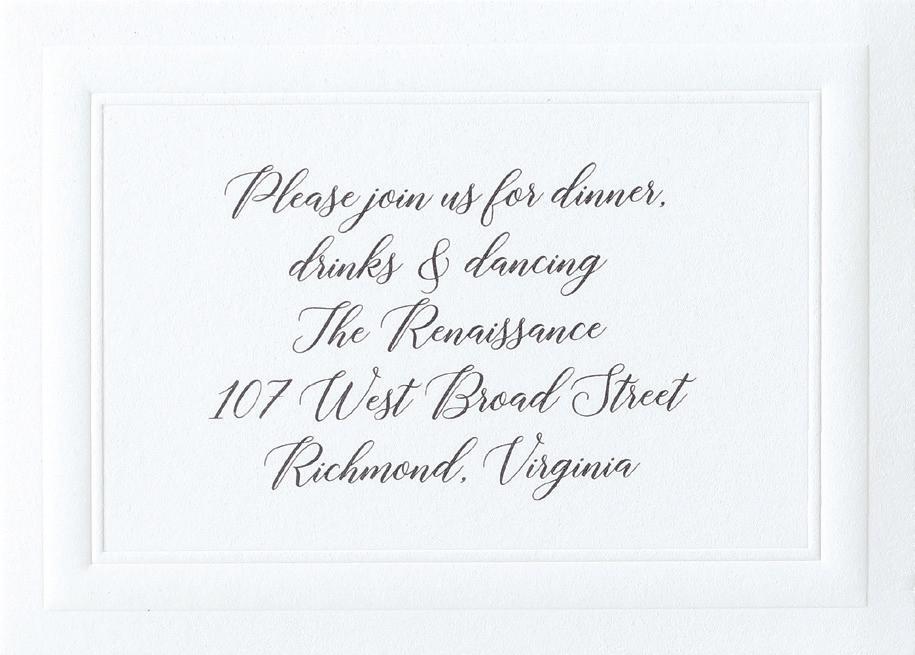 Please join us for dinner,
drinks & dancing
The Renaissance
107 West Broad Street
Richmond, Virginia